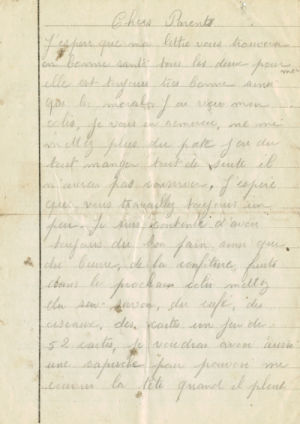 Chers Parents
J'espère que ma lettre vous trouvera
en bonne santé tous les deux pour moi
elle est toujours très bonne ainsi
que le moral. J'ai reçu mon
colis, je vous en remercie, ne me
mettez plus du pate j'ai du
tout manger tout de suite il
n'aurai pas conserver. J'espère
que vous travaillez toujours un
peu. Je suis contente d'avoir
toujours du bon pain, ainsi que
du beurre, de la confiture, fruits
dans le prochain colis mettez
du savon, du café, des
ciseaux, des cartes un jeu de
52 cartes, je voudrai avoir aussi
une pour pouvoir me
couvrir la tête quand il pleut